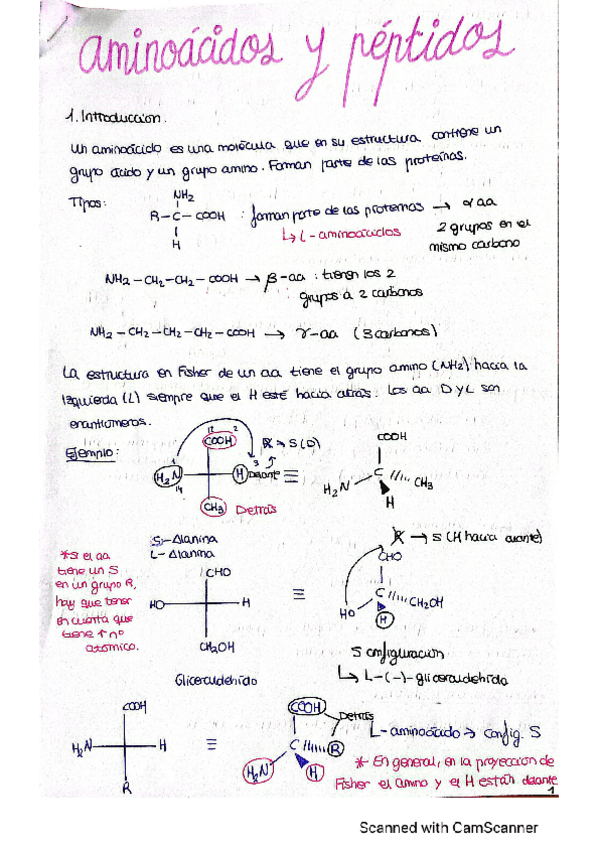 aminoácidos y péptidos
1. Introducción.
Un aminoácido es una molécula que en su estructura contiene un
grupo ácido y un grupo amino. Forman parte de las proteínas.
Tipos:
NH2
R-C-COOH : forman parte de las proteínas → α aa
H
↳ L-aminoácidos
2 grupos en el
mismo carbono
NH2-CH2-CH2-COOH → β-aa : tienen los 2
grupos a 2 carbonos
NH2-CH2-CH2-CH2-COOH → γ-aa (3 carbonos)
La estructura en Fisher de un aa tiene el grupo amino (NH2) hacia la
izquierda (L) siempre que el H esté hacia atrás. Los aa D y L son
enantiómeros.
Ejemplo:
COOH 2
R → S (D)
H2N
H Delante
CH3 Detrás
≡
COOH
H2N C CH3
H
S-Alanina
L-Alanina
R → S (H hacia delante)
*Si el aa
tiene un S
en un grupo R,
hay que tener
en cuenta que
tiene ↑ nº
atómico.
CHO
HO H
CH2OH
Gliceraldehído
≡
CHO
C CH2OH
HO H
S configuración
↳ L-(-)-gliceraldehído
COOH
H2N H
R
≡
COOH Detrás
C R
H2N H
L-aminoácido → config. S
* En general, en la proyección de
Fisher el amino y el H están delante
1
Scanned with CamScanner